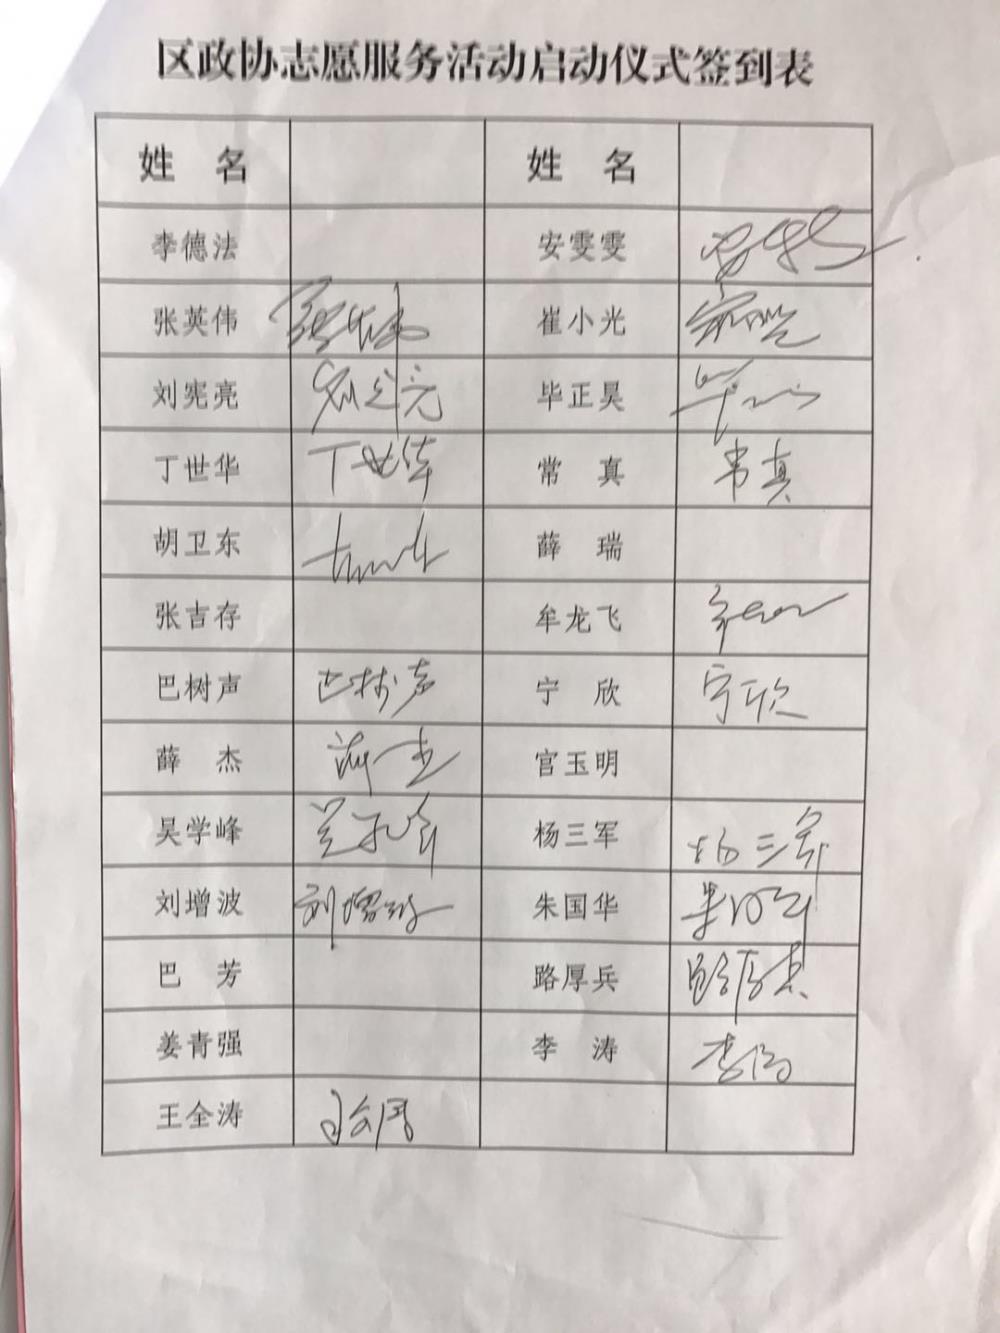 区政协志愿服务活动启动仪式签到表
姓 名 姓 名
李德法 安雯雯
张英伟 崔小光
刘宪亮 毕正昊
丁世华 丁世华 常 真 常真
胡卫东 薛 瑞
张吉存 牟龙飞
巴树声 巴树声 宁 欣 宁欣
薛 杰 薛杰 官玉明
吴学峰 吴学峰 杨三军 杨三军
刘增波 刘增波 朱国华 朱国华
巴 芳 路厚兵 路厚兵
姜青强 李 涛 李涛
王全涛